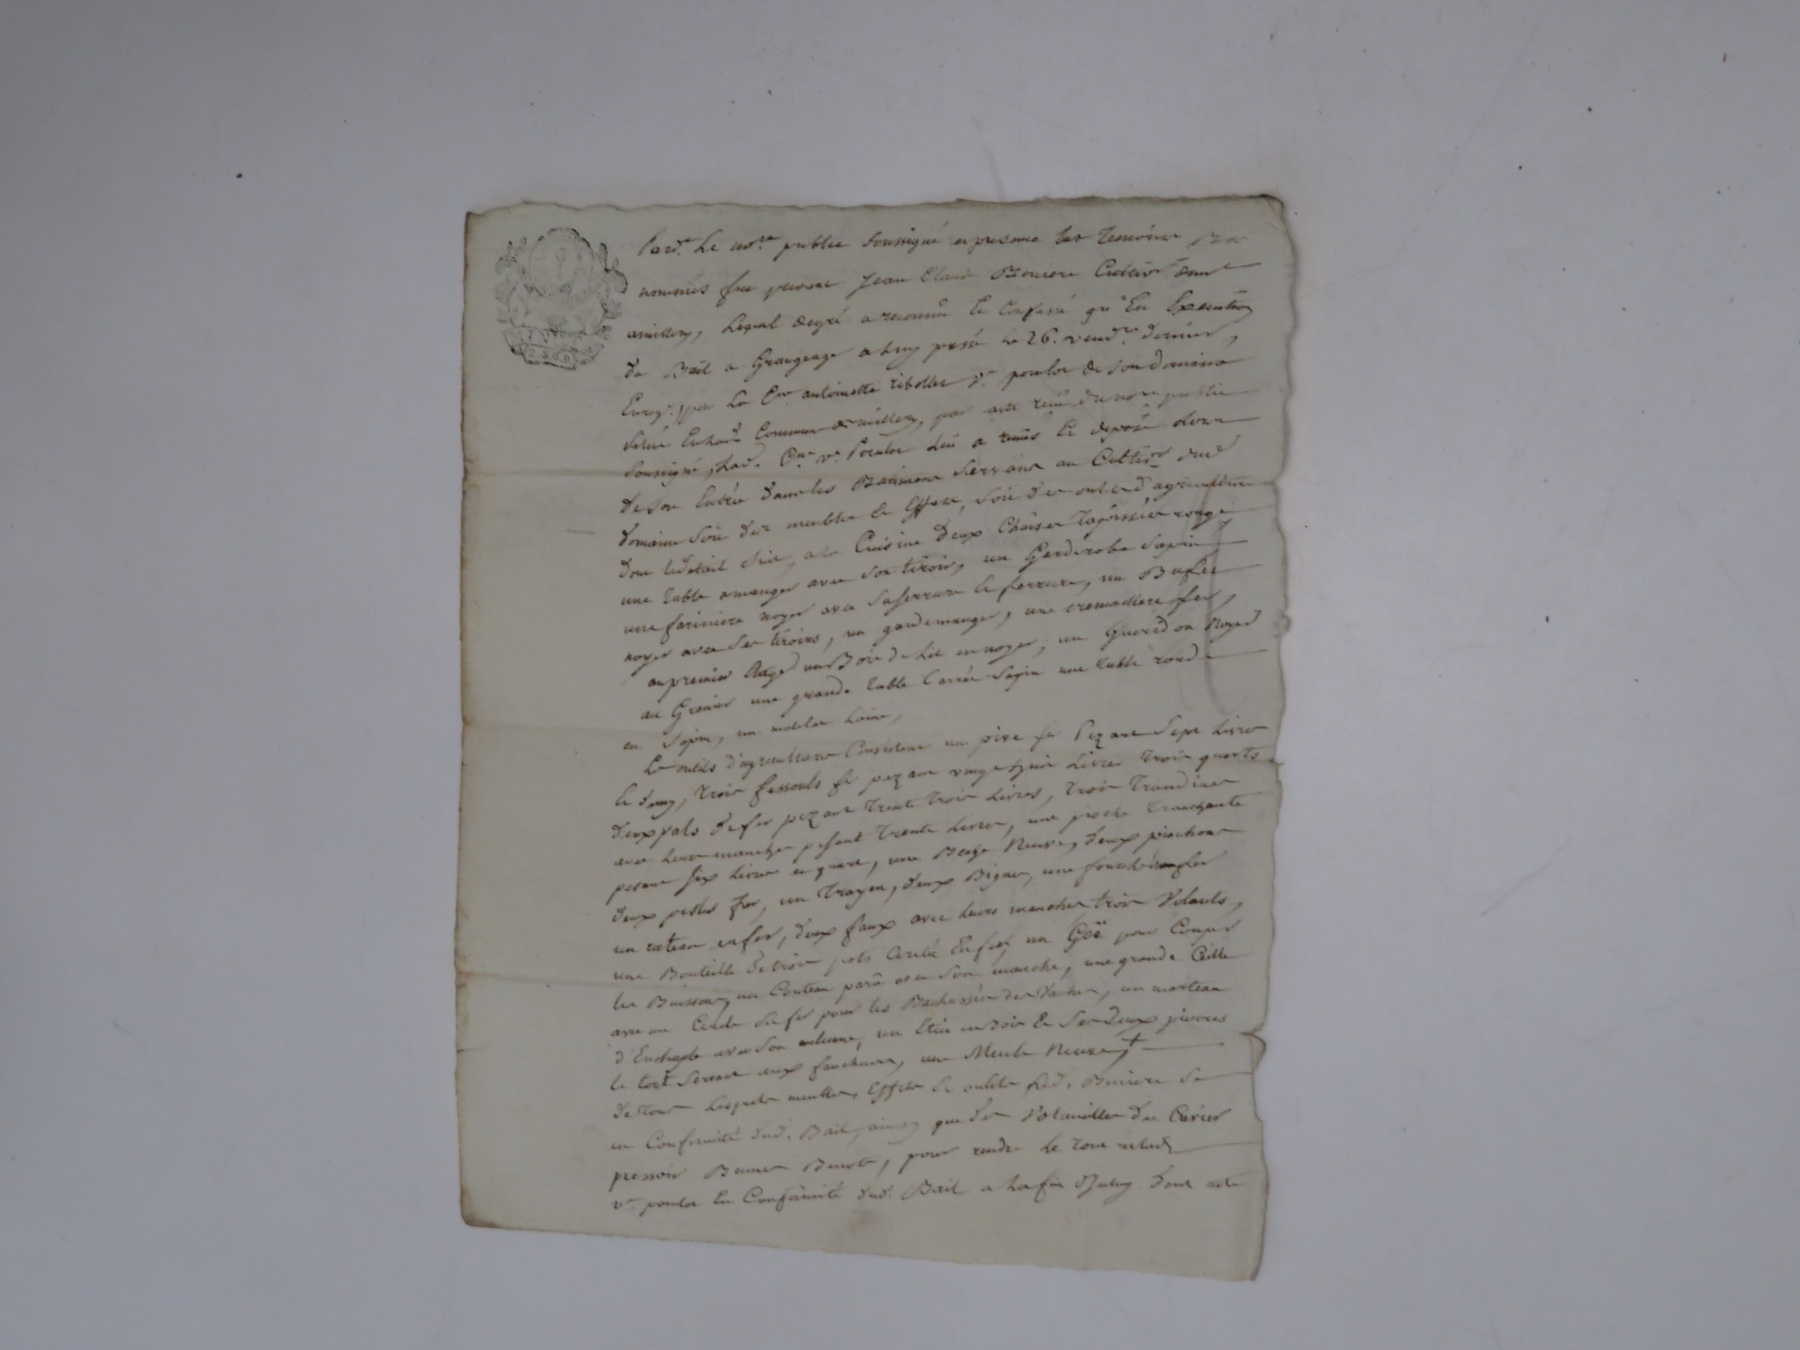 Pard.t Le no.re public soussigné en presence des Temoins Bas
nommés fut present Jean Claude Boniere Cultiv.r dem.t
a millery, Lequel degré a reconnu Et Confessé qu'En Execution
du Bail a Grangeage a luy passé Le 26. vend.re dernier,
Enreg.t par La C.ne antoinette ribollet v.e poulot de son domaine
situé Commune de millery, par acte reçu du no.re public
soussigné, Lad. C.ne v.e Poulot lui a remis Et deposé Lors
de son Entrée dans les Batimens Servant au Cultiv.r dud.
domaine soit des meubles Et Effets, soit des outils d'agriculture
dont Ledetail suit, a la Cuisine Deux Chaises rouge
une table amanger avec son tiroir, un Garderobe Sapin,
une fariniere noyer avec saserrure Et ferrure, un Bufet
noyer avec ses tiroirs, un gardemanger, une cremailiere fer,
au premier un Bois de Lit en noyer, un Gueridon Noyer
au Grenier une grande table Carrée Sapin une table ronde
en Sapin, un matelas Laine,
Les outils d'agriculture Consistent un pive fer Pezant Sept Livres
Et demy, trois fessouls fer pezant vingt huit Livres trois quarts
deux pals defer pezant Trente trois Livres, trois Trandines
avec Leurs manches pesant trente Livres, une pioche Tranchante
pesant six Livres un quart, une Beche Neuve, deux piochons
deux pelles fer, un Trayen, deux Bigues, une fourche en fer
un rateau en fer, deux faux avec Leurs manches trois Volants,
une Bouteille detrois pots Cerclée En fer, un Goë pour Couper
Les Buissons, un Couteau parà avec son manche, une grande
avec un Cercle de fer pour les des Vaches, un marteau
d'Enchaple avec son enclume, un Etui en Bois Et Ses deux pierres
Le tout Servant aux faucheurs, une Meule Neuve, +
de tous Lesquels meubles, Effets Et outils Led. Boniere Se
en Conformité dud. Bail, ainsy que des du Cuvier
pressoir Bennes, pour rendre Le tout a Lad.
v.e poulot En Conformité dud. Bail a La fin d'Iceluy. dont acte